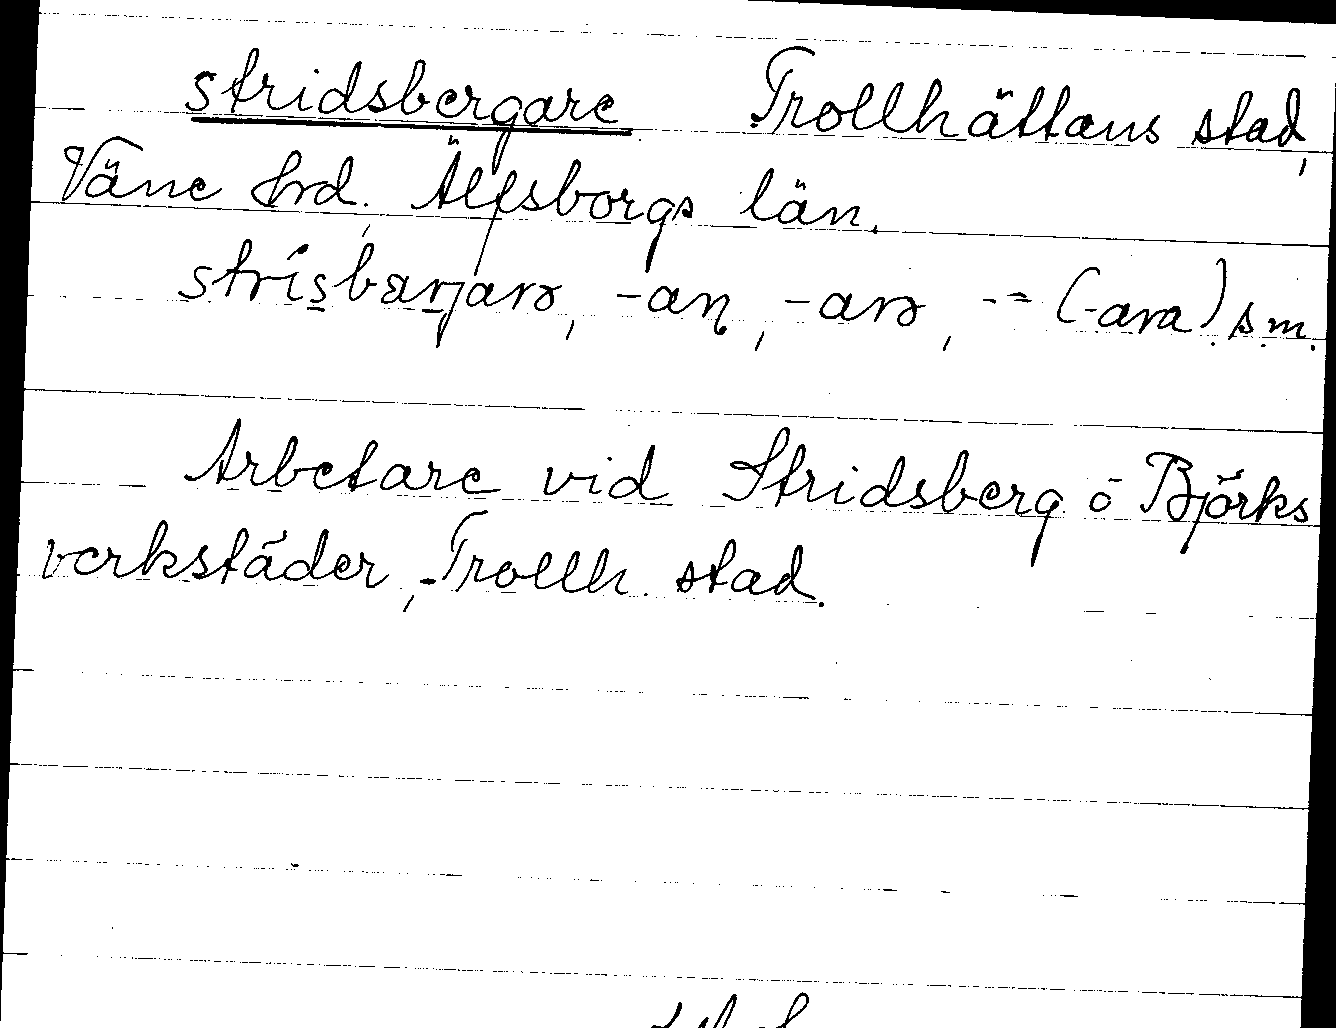 stridsbergare Trollhättans stad,
Väne hrd. Älfsborgs län.
strisbarjarə, -aɳ, -arə, -= (-ara) s.m.
Arbetare vid Stridsberg o Björks
verkstäder, Trollh. stad.